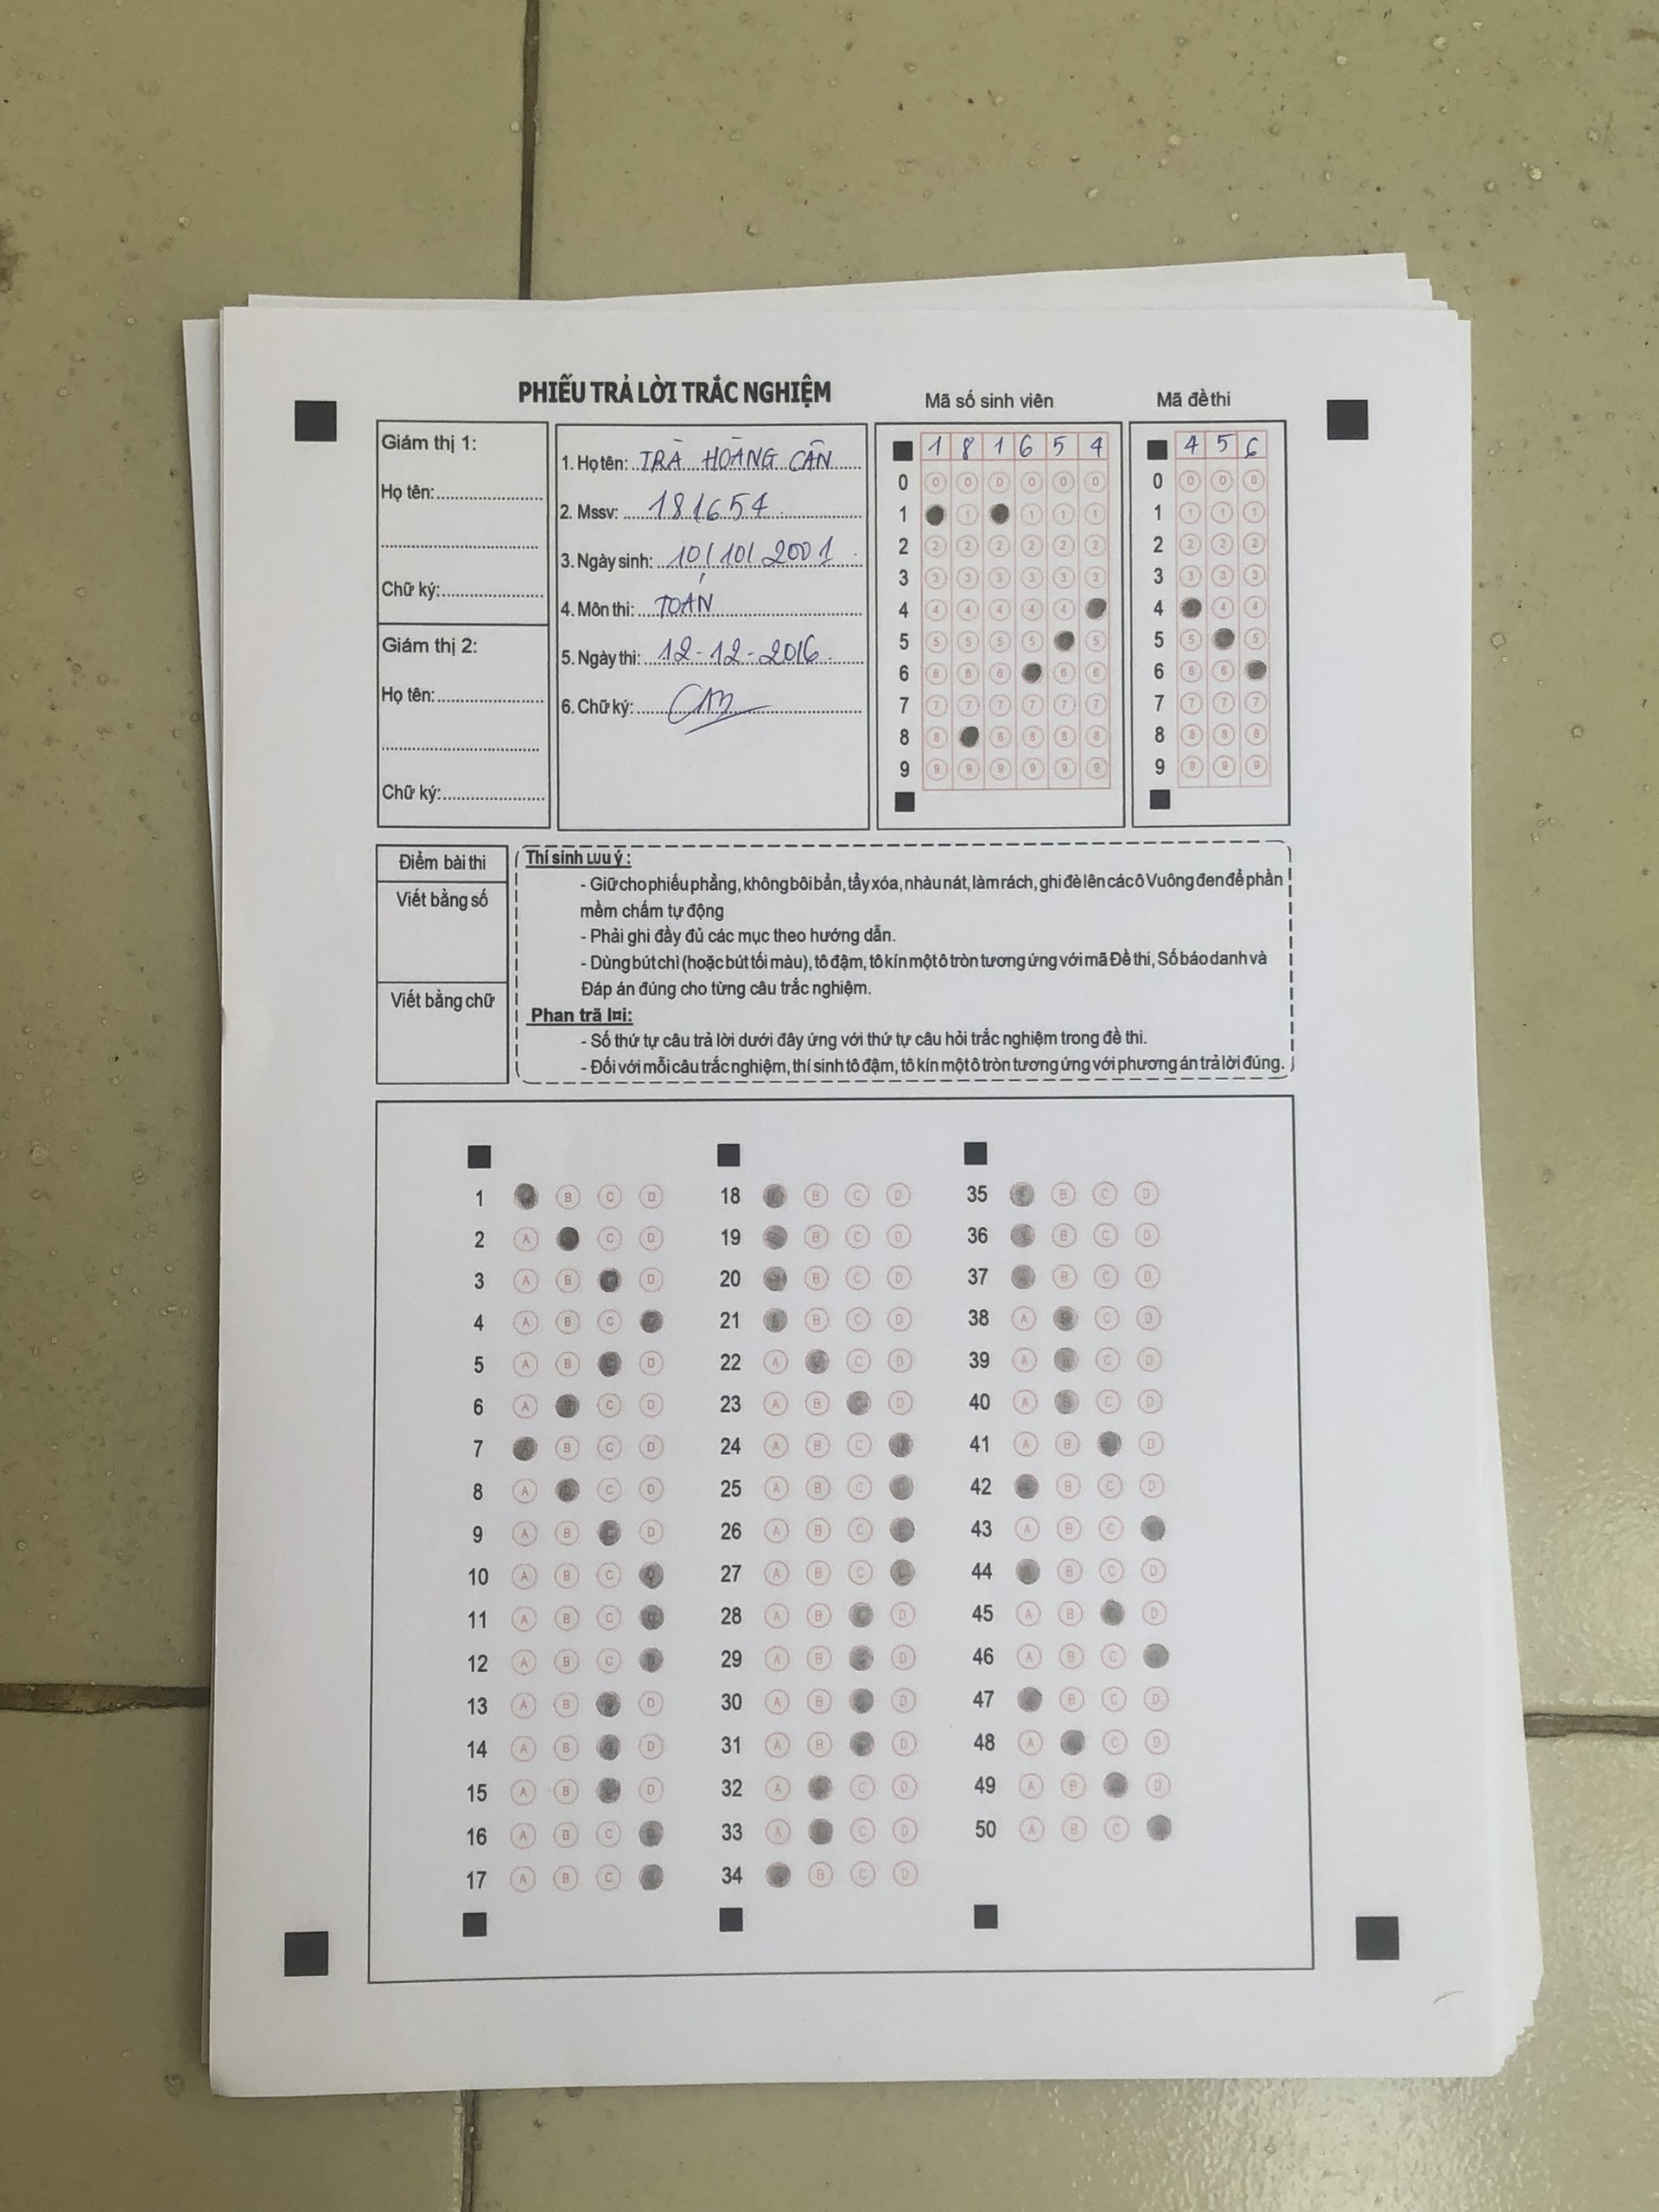 PHIẾU TRẢ LỜI TRẮC NGHIỆM
Giám thị 1:
Họ tên:
Chữ ký:
Giám thị 2:
Họ tên:
Chữ ký:
1. Họ tên: TRÀ HOÀNG CẦN
2. Mssv: 181654
3. Ngày sinh: 10/10/2001
4. Môn thi: TOÁN
5. Ngày thi: 12-12-2016
6. Chữ ký:
Mã số sinh viên
1 8 1 6 5 4
0 0 0 0 0 0 0
1 1 1 1 1
2 2 2 2 2 2 2
3 3 3 3 3 3 3
4 4 4 4 4 4
5 5 5 5 5 5
6 6 6 6 6 6
7 7 7 7 7 7 7
8 8 8 8 8 8
9 9 9 9 9 9 9
Mã đề thi
4 5 6
0 0 0 0
1 1 1 1
2 2 2 2
3 3 3 3
4 4 4
5 5 5
6 6 6
7 7 7 7
8 8 8 8
9 9 9 9
Điểm bài thi
Viết bằng số
Viết bằng chữ
Thí sinh LƯU ý :
- Giữ cho phiếu phẳng, không bôi bẩn, tẩy xóa, nhàu nát, làm rách, ghi đè lên các ô Vuông đen để phần
mềm chấm tự động
- Phải ghi đầy đủ các mục theo hướng dẫn.
- Dùng bút chì (hoặc bút tối màu), tô đậm, tô kín một ô tròn tương ứng với mã Đề thi, Số báo danh và
Đáp án đúng cho từng câu trắc nghiệm.
Phan trã l¤i:
- Số thứ tự câu trả lời dưới đây ứng với thứ tự câu hỏi trắc nghiệm trong đề thi.
- Đối với mỗi câu trắc nghiệm, thí sinh tô đậm, tô kín một ô tròn tương ứng với phương án trả lời đúng.
1 B C D
2 A C D
3 A B D
4 A B C
5 A B D
6 A C D
7 B C D
8 A C D
9 A B D
10 A B C
11 A B C
12 A B C
13 A B D
14 A B D
15 A B D
16 A B C
17 A B C
18 B C D
19 B C D
20 B C D
21 B C D
22 A C D
23 A B D
24 A B C
25 A B C
26 A B C
27 A B C
28 A B D
29 A B D
30 A B D
31 A B D
32 A C D
33 A C D
34 B C D
35 B C D
36 B C D
37 B C D
38 A C D
39 A C D
40 A C D
41 A B D
42 B C D
43 A B C
44 B C D
45 A B D
46 A B C
47 B C D
48 A C D
49 A B D
50 A B C